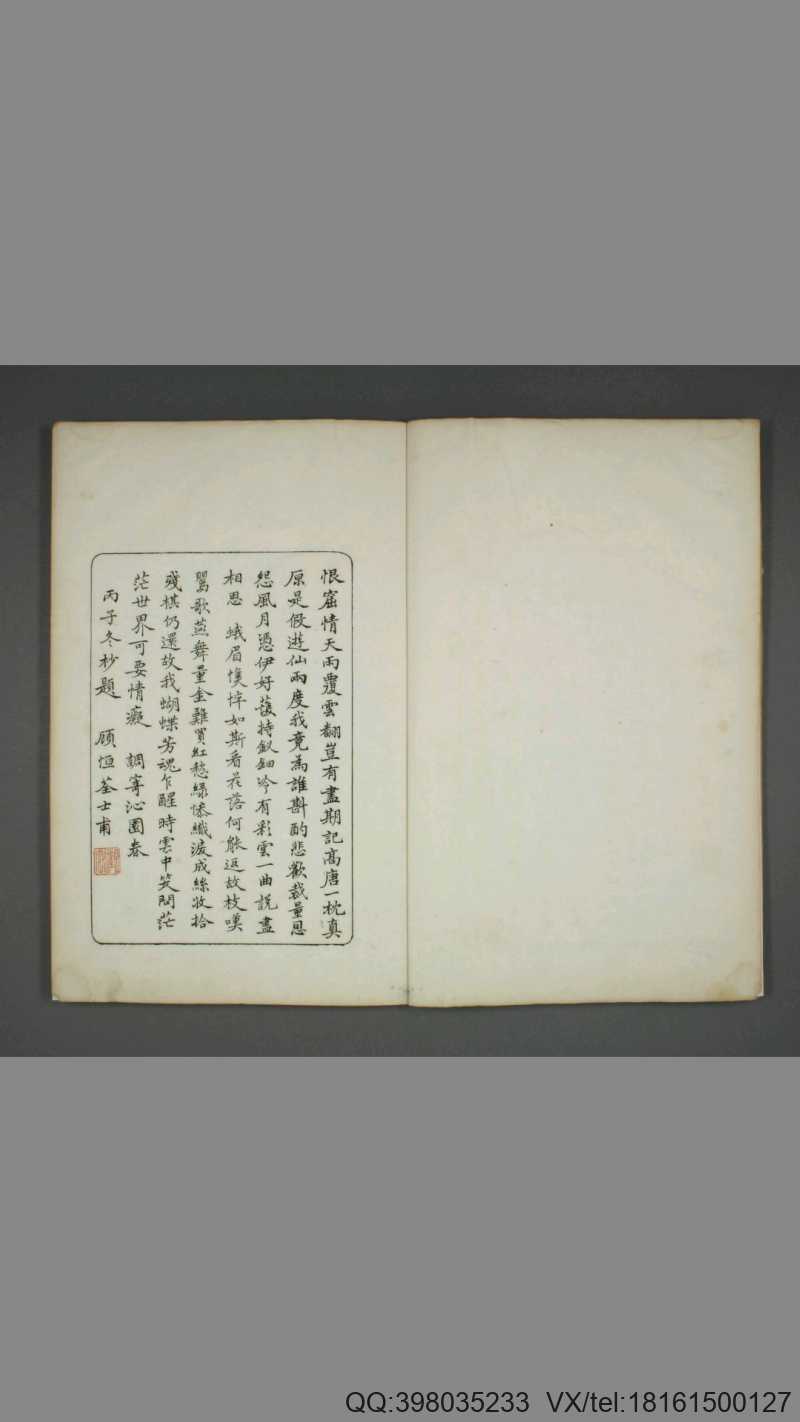 恨窟情天雨覆雲翻豈有盡期記高唐一枕真
原是假遊仙兩度我竟為誰斟酌悲歡裁量恩
怨風月憑伊好護持釵鈿冷有彩雲一曲說盡
相思　蛾眉憔悴如斯看花落何能返故枝嘆
鶯歌燕舞量金難買紅愁綠慘織淚成絲收拾
殘棋仍還故我蝴蝶芳魂乍醒時雲中笑問茫
茫世界可要情癡　調寄沁園春
丙子冬杪題　顧恒荃士甫
QQ:398035233 VX/tel:18161500127